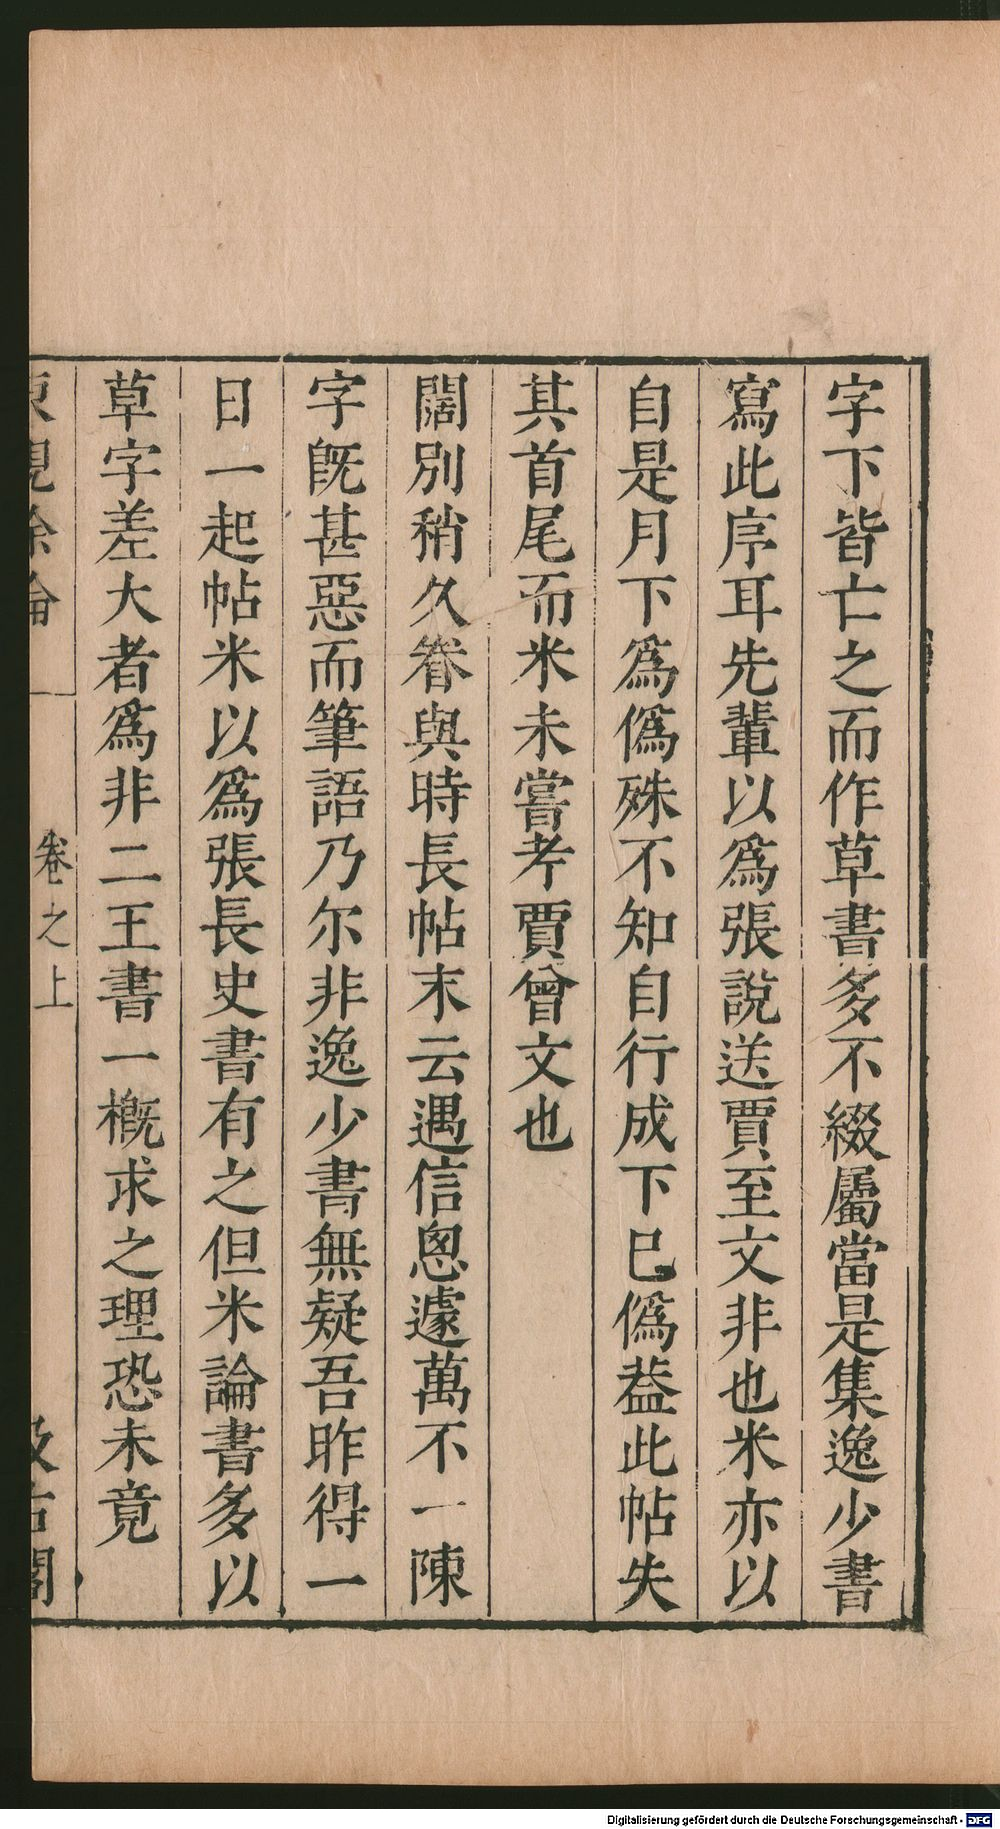 字下皆亡之而作草書多不綴屬當是集逸少書
寫此序耳先輩以爲張說送賈至文非也米亦以
自是月下爲僞殊不知自行成下已僞葢此帖失
其首尾而米未嘗考賈曾文也
闊別稍久眷與時長帖末云遇信悤遽萬不一陳
字旣甚惡而筆語乃尔非逸少書無疑吾昨得一
日一起帖米以爲張長史書有之但米論書多以
草字差大者爲非二王書一槪求之理恐未竟
東觀餘論 卷之上 汲古閣
Digitalisierung gefördert durch die Deutsche Forschungsgemeinschaft - DFG